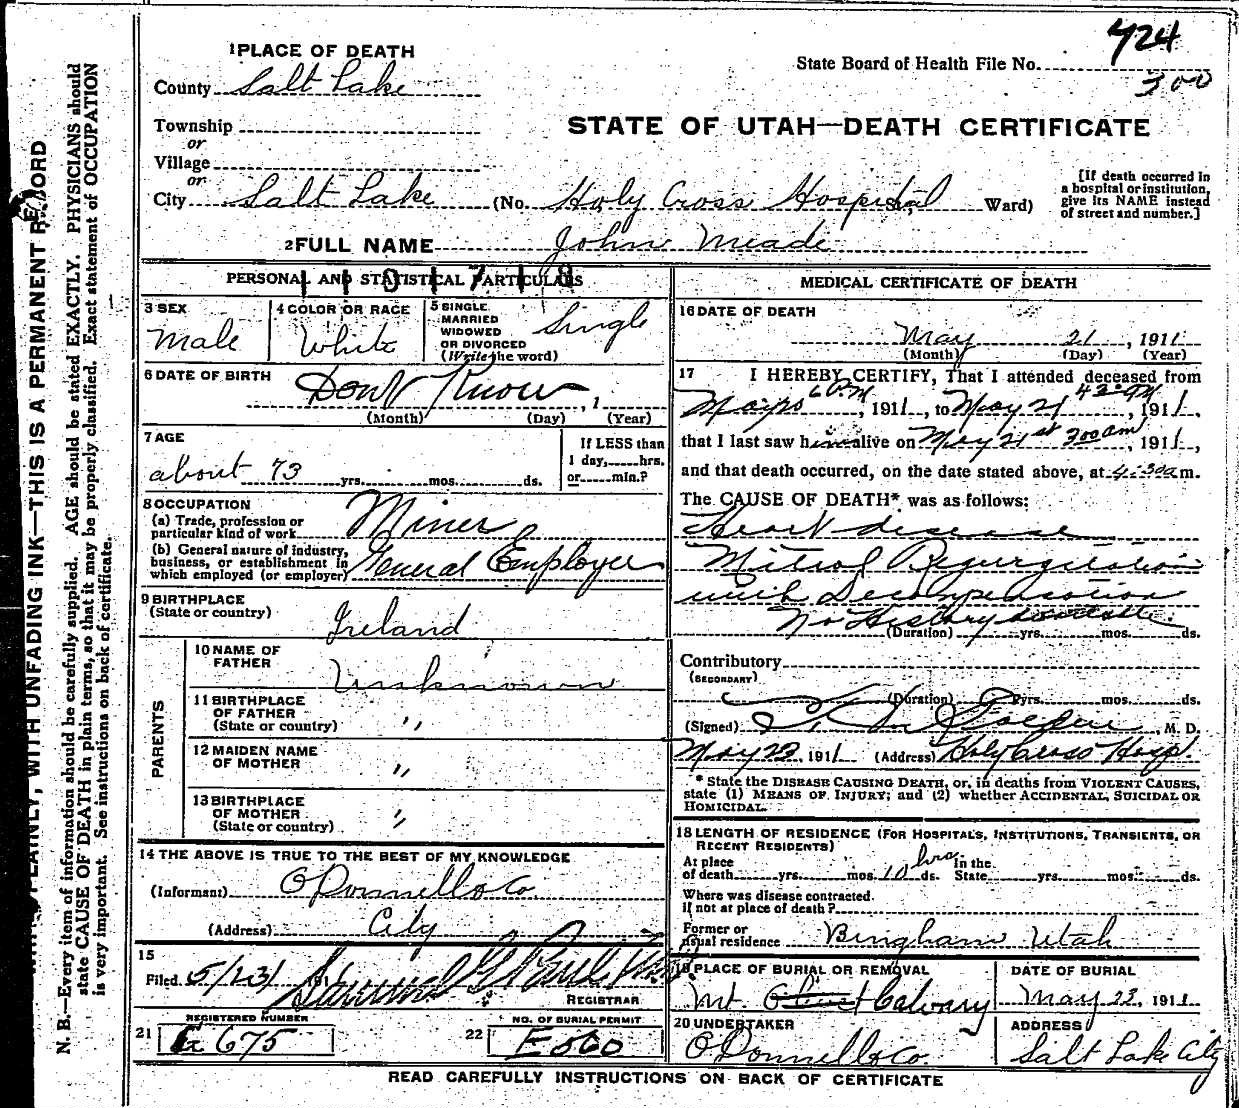 424
300
1 PLACE OF DEATH
State Board of Health File No.
County Salt Lake
STATE OF UTAH—DEATH CERTIFICATE
Township
or
Village
or
City Salt Lake (No. Holy Cross Hospital St.; Ward)
[If death occurred in
a hospital or institution,
give its NAME instead
of street and number.]
2 FULL NAME John Meade
PERSONAL AND STATISTICAL PARTICULARS
3 SEX
Male
4 COLOR OR RACE
White
5 SINGLE
MARRIED
WIDOWED
OR DIVORCED
(Write the word)
Single
6 DATE OF BIRTH
Dont Know, 1
(Month) (Day) (Year)
7 AGE
about 73 yrs. mos. ds.
If LESS than
1 day, hrs.
or min.?
8 OCCUPATION
(a) Trade, profession or
particular kind of work
Miner
(b) General nature of industry,
business, or establishment in
which employed (or employer)
General Employee
9 BIRTHPLACE
(State or country)
Ireland
PARENTS
10 NAME OF
FATHER
Unknown
11 BIRTHPLACE
OF FATHER
(State or country) "
12 MAIDEN NAME
OF MOTHER "
13 BIRTHPLACE
OF MOTHER
(State or country) "
14 THE ABOVE IS TRUE TO THE BEST OF MY KNOWLEDGE
(Informant) O'Donnell & Co.
(Address) City
15
Filed 5/23/ 191
REGISTRAR
REGISTERED NUMBER
21 675
NO. OF BURIAL PERMIT
22 E560
MEDICAL CERTIFICATE OF DEATH
16 DATE OF DEATH
May 21, 1911
(Month) (Day) (Year)
17 I HEREBY CERTIFY, That I attended deceased from
6 P.M., 1911, to May 21, 1911,
that I last saw him alive on May 21st 3:00 am, 1911,
and that death occurred, on the date stated above, at 4:30 a m.
The CAUSE OF DEATH* was as follows:
Heart disease
Mitral Regurgitation
with Decompensation
No History
(Duration) yrs. mos. ds.
Contributory
(SECONDARY)
(Duration) yrs. mos. ds.
(Signed) M. D.
May 22, 1911 (Address) Holy Cross Hosp.
* State the DISEASE CAUSING DEATH, or, in deaths from VIOLENT CAUSES,
state (1) MEANS OF INJURY; and (2) whether ACCIDENTAL, SUICIDAL OR
HOMICIDAL.
18 LENGTH OF RESIDENCE (FOR HOSPITALS, INSTITUTIONS, TRANSIENTS, OR
RECENT RESIDENTS)
At place
of death yrs. mos. 10 hrs ds. In the
State yrs. mos. ds.
Where was disease contracted.
If not at place of death?
Former or
usual residence Bingham Utah
19 PLACE OF BURIAL OR REMOVAL
Mt. Olivet Calvary
DATE OF BURIAL
May 23, 1911
20 UNDERTAKER
O'Donnell & Co.
ADDRESS
Salt Lake City
READ CAREFULLY INSTRUCTIONS ON BACK OF CERTIFICATE
PLAINLY, WITH UNFADING INK—THIS IS A PERMANENT RECORD
N. B.—Every item of information should be carefully supplied. AGE should be stated EXACTLY. PHYSICIANS should
state CAUSE OF DEATH in plain terms, so that it may be properly classified. Exact statement of OCCUPATION
is very important. See instructions on back of certificate.